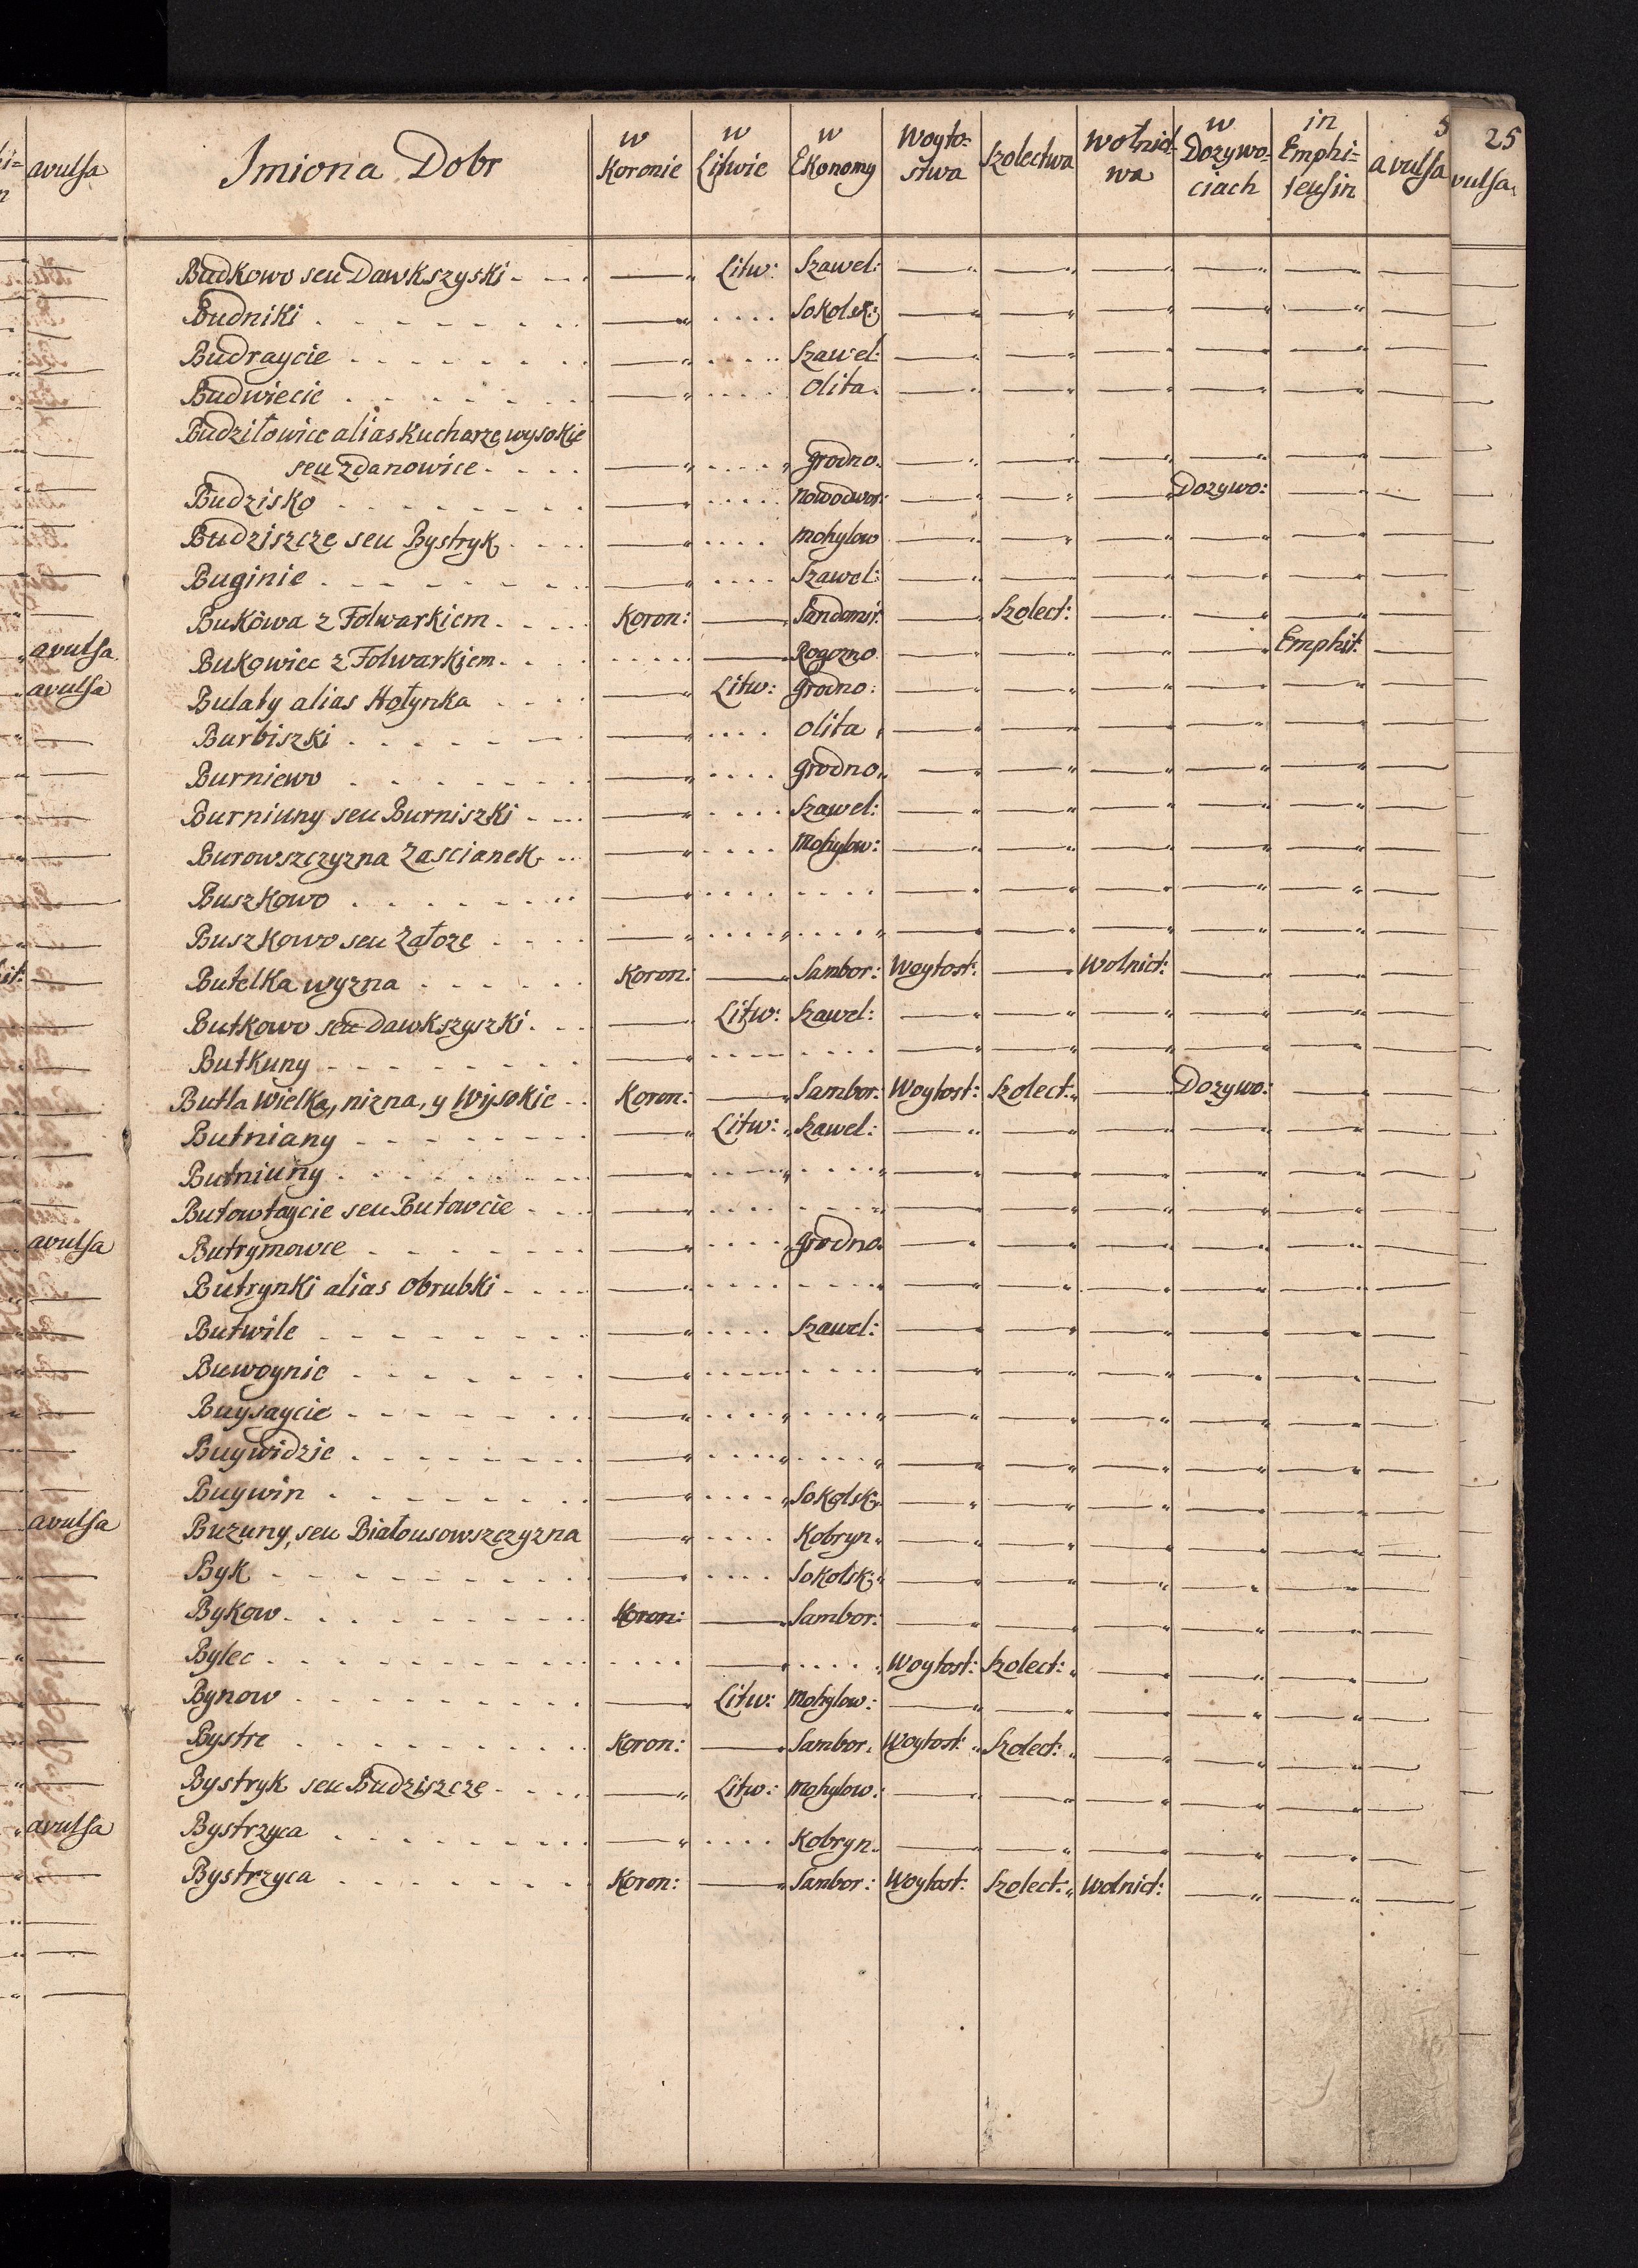 Imiona Dobr w Koronie w Litwie w Ekonomy Woyto= stwa Szolectwa Wolnict= wa w Dozywo= ciach in Emphi= teusin avulsa 5 25
Budkowo seu Dawkszyski - - - — Litw: Szawel: — — — — — —
Budniki . - - - - - - . — . . . . Sokolsk: — — — — — —
Budraycie . - - - - - - — . . . . Szawel: — — — — — —
Budwiecie . - - - - - - — . . . . Olita. — — — — — —
Budziłowice alias Kucharze wysokie
seu Zdanowice - - - . — . . . . Grodno. — — — — — —
Budzisko . - - - - - - — . . . . Nowodwor: — — — Dozywo: — —
Budziszcze seu Bystryk . - - . — . . . . Mohylow — — — — — —
Buginie . - - - - - - — . . . . Szawel: — — — — — —
Bukowa z Folwarkiem . - - . Koron: — Sandomir. — Szolect: — — — —
Bukowiec z Folwarkiem . - - . . . . . — Rogozno. — — — — Emphit: —
Bulaty alias Hołynka . - - . — Litw: Grodno: — — — — — —
Burbiszki . - - - - - — . . . . Olita — — — — — —
Burniewo . - - - - - - — . . . . Grodno. — — — — — —
Burniuny seu Burniszki . - - — . . . . Szawel: — — — — — —
Burowszczyzna Zascianek - - — . . . . Mohylow: — — — — — —
Buszkowo . - - - - - - — . . . . . . . . — — — — — —
Buszkowo seu Zatoze . - - . — . . . . . . . . — — — — — —
Butelka wyzna . - - - - . Koron: — Sambor: Woytost: — Wolnict: — — —
Butkowo seu Dawkszyszki . - - — Litw: Szawel: — — — — — —
Butkuny - - - - - - - — . . . . . . . . — — — — — —
Butla Wielka, nizna, y Wysokie - . Koron: — Sambor: Woytost: Szolect: — Dozywo: — —
Butniany - - - - - - - — Litw: Szawel: — — — — — —
Butniuny . - - - - - - — . . . . . . . . — — — — — —
Butowtaycie seu Butowcie - - . — . . . . . . . . — — — — — —
Butrymowce - - - - - - — . . . . Grodno. — — — — — —
Butrynki alias Obrubki - - - . — . . . . . . . . — — — — — —
Butwile - - - - - - - — . . . . Szawel: — — — — — —
Buwoynie - - - - - - - — . . . . . . . . — — — — — —
Buysaycie - - - - - - - — . . . . . . . . — — — — — —
Buywidzie . - - - - - - — . . . . . . . . — — — — — —
Buywin . - - - - - - — . . . . Sokolsk: — — — — — —
Buzuny, seu Białousowszczyzna — . . . . Kobryn. — — — — — —
Byk - - - - - - - - — . . . . Sokolsk: — — — — — —
Bykow . - - - - - - - Koron: — Sambor: — — — — — —
Bylec . - - - - - - - . . . . — . . . . Woytost: Szolect: — — — —
Bynow . - - - - - - - — Litw: Mohylow: — — — — — —
Bystre . - - - - - - - Koron: — Sambor. Woytost: Szolect: — — — —
Bystryk seu Budziszcze - - - . — Litw: Mohylow: — — — — — —
Bystrzyca . - - - - - - — . . . . Kobryn. — — — — — —
Bystrzyca . - - - - - - Koron: — Sambor: Woytost: Szolect: Wolnict: — — —
avulsa
avulsa
avulsa
avulsa
avulsa
avulsa
vulsa